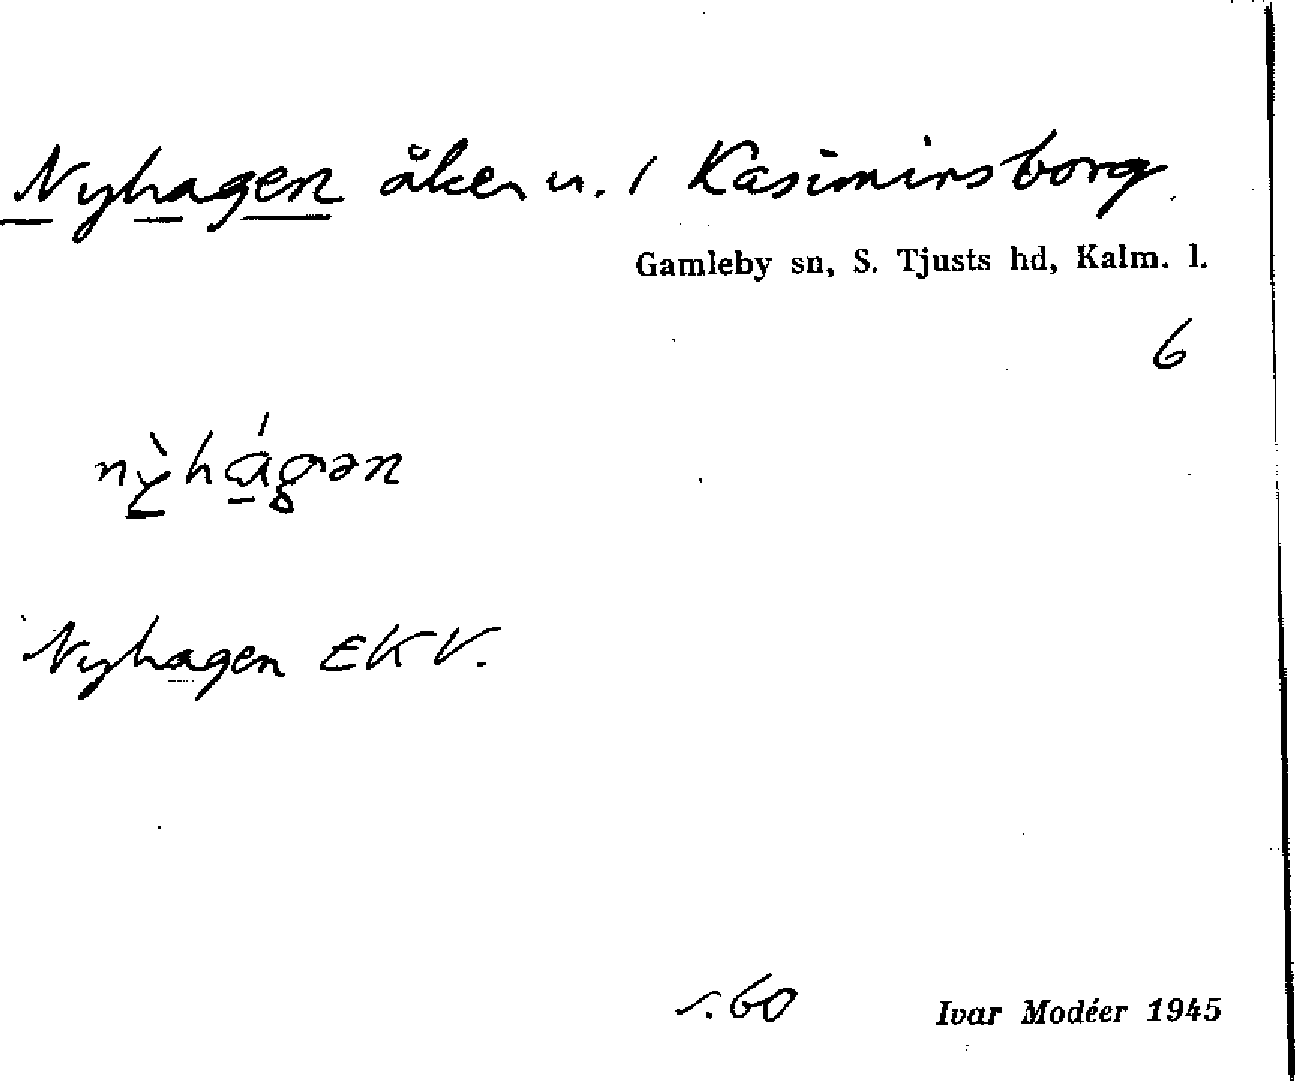 Nyhagen åker u. / Kasimirsborg.
Gamleby sn, S. Tjusts hd, Kalm. l.
6
nỳhágən
Nyhagen EKV.
s. 60 Ivar Modéer 1945